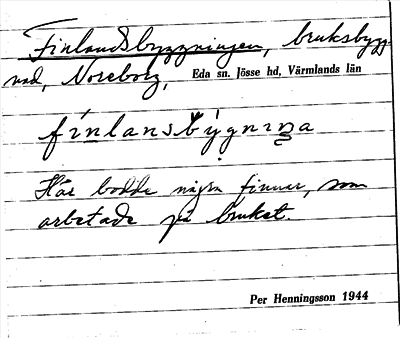 Finlandsbyggningen, bruksbygg-
nad, Noreborg, Eda sn. Jösse hd, Värmlands län
fínlansbýgnıŋa
Här bodde några finnar, som
arbetade på bruket.
Per Henningsson 1944